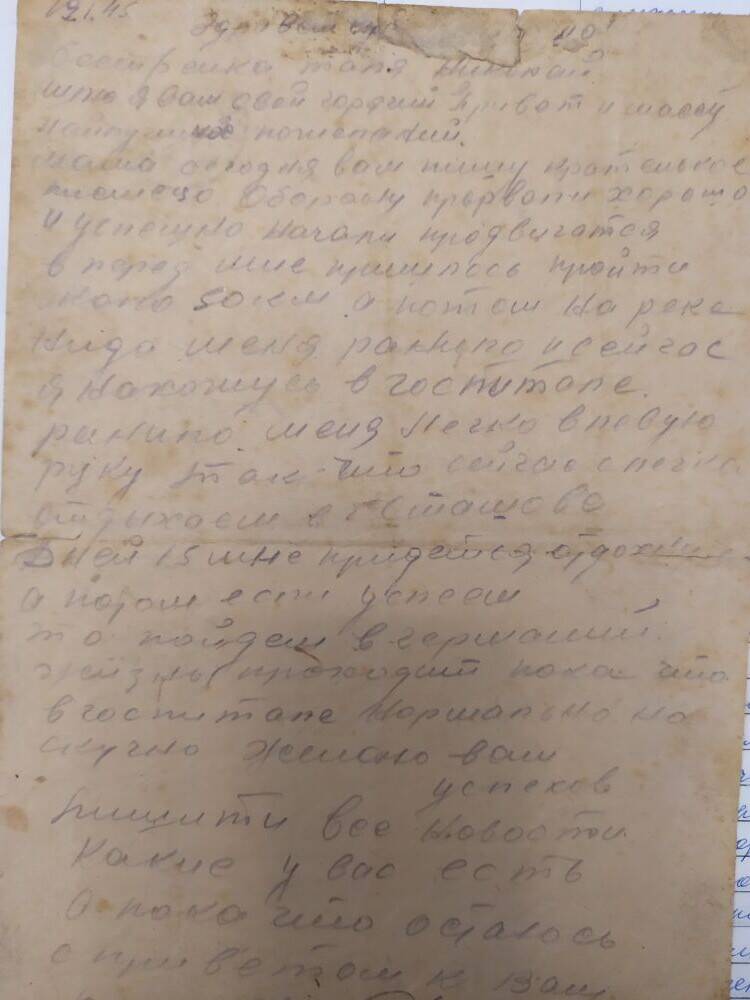 Сестренка таня Николай
шлю я Вам свой горячий Привет и массу
пожеланий.
мама сегодня вам пишу кратенькое
писмецо Оборону прорвали хорошо
и успешно начали продвигатся
в перед мне пришлось пройти
около 50 км а потом на реке
Нида меня ранило и сейчас
я нахожусь в госпитале.
ранило меня легко в левую
руку так что сейчас
отдыхаем в
Дней 15 мне придется
а потом если успеем
то пойдем в германий.
жизнь проходит пока что
в госпитале Нормально но
скучно Желаю вам
успехов
пишити все Новости
Какие у вас есть
А пока что остаюсь
с приветом к Вам